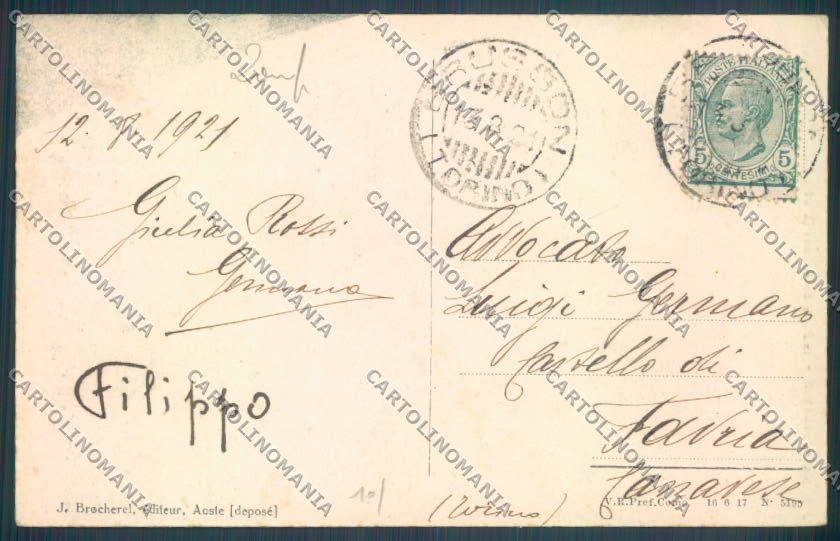 12. 8. 1921
Giulia Rossi
Germano
Filippo
10/
J. Brocherel, éditeur, Aoste [deposé]
BRUSSON
(TORINO)
POSTE ITALIANE
5 CENTESIMI 5
Avvocato
Luigi Germano
Castello di
Favria
Canavese
(Torino)
V.R.Pref.Como 16 6 17 N° 5195
CARTOLINOMANIA